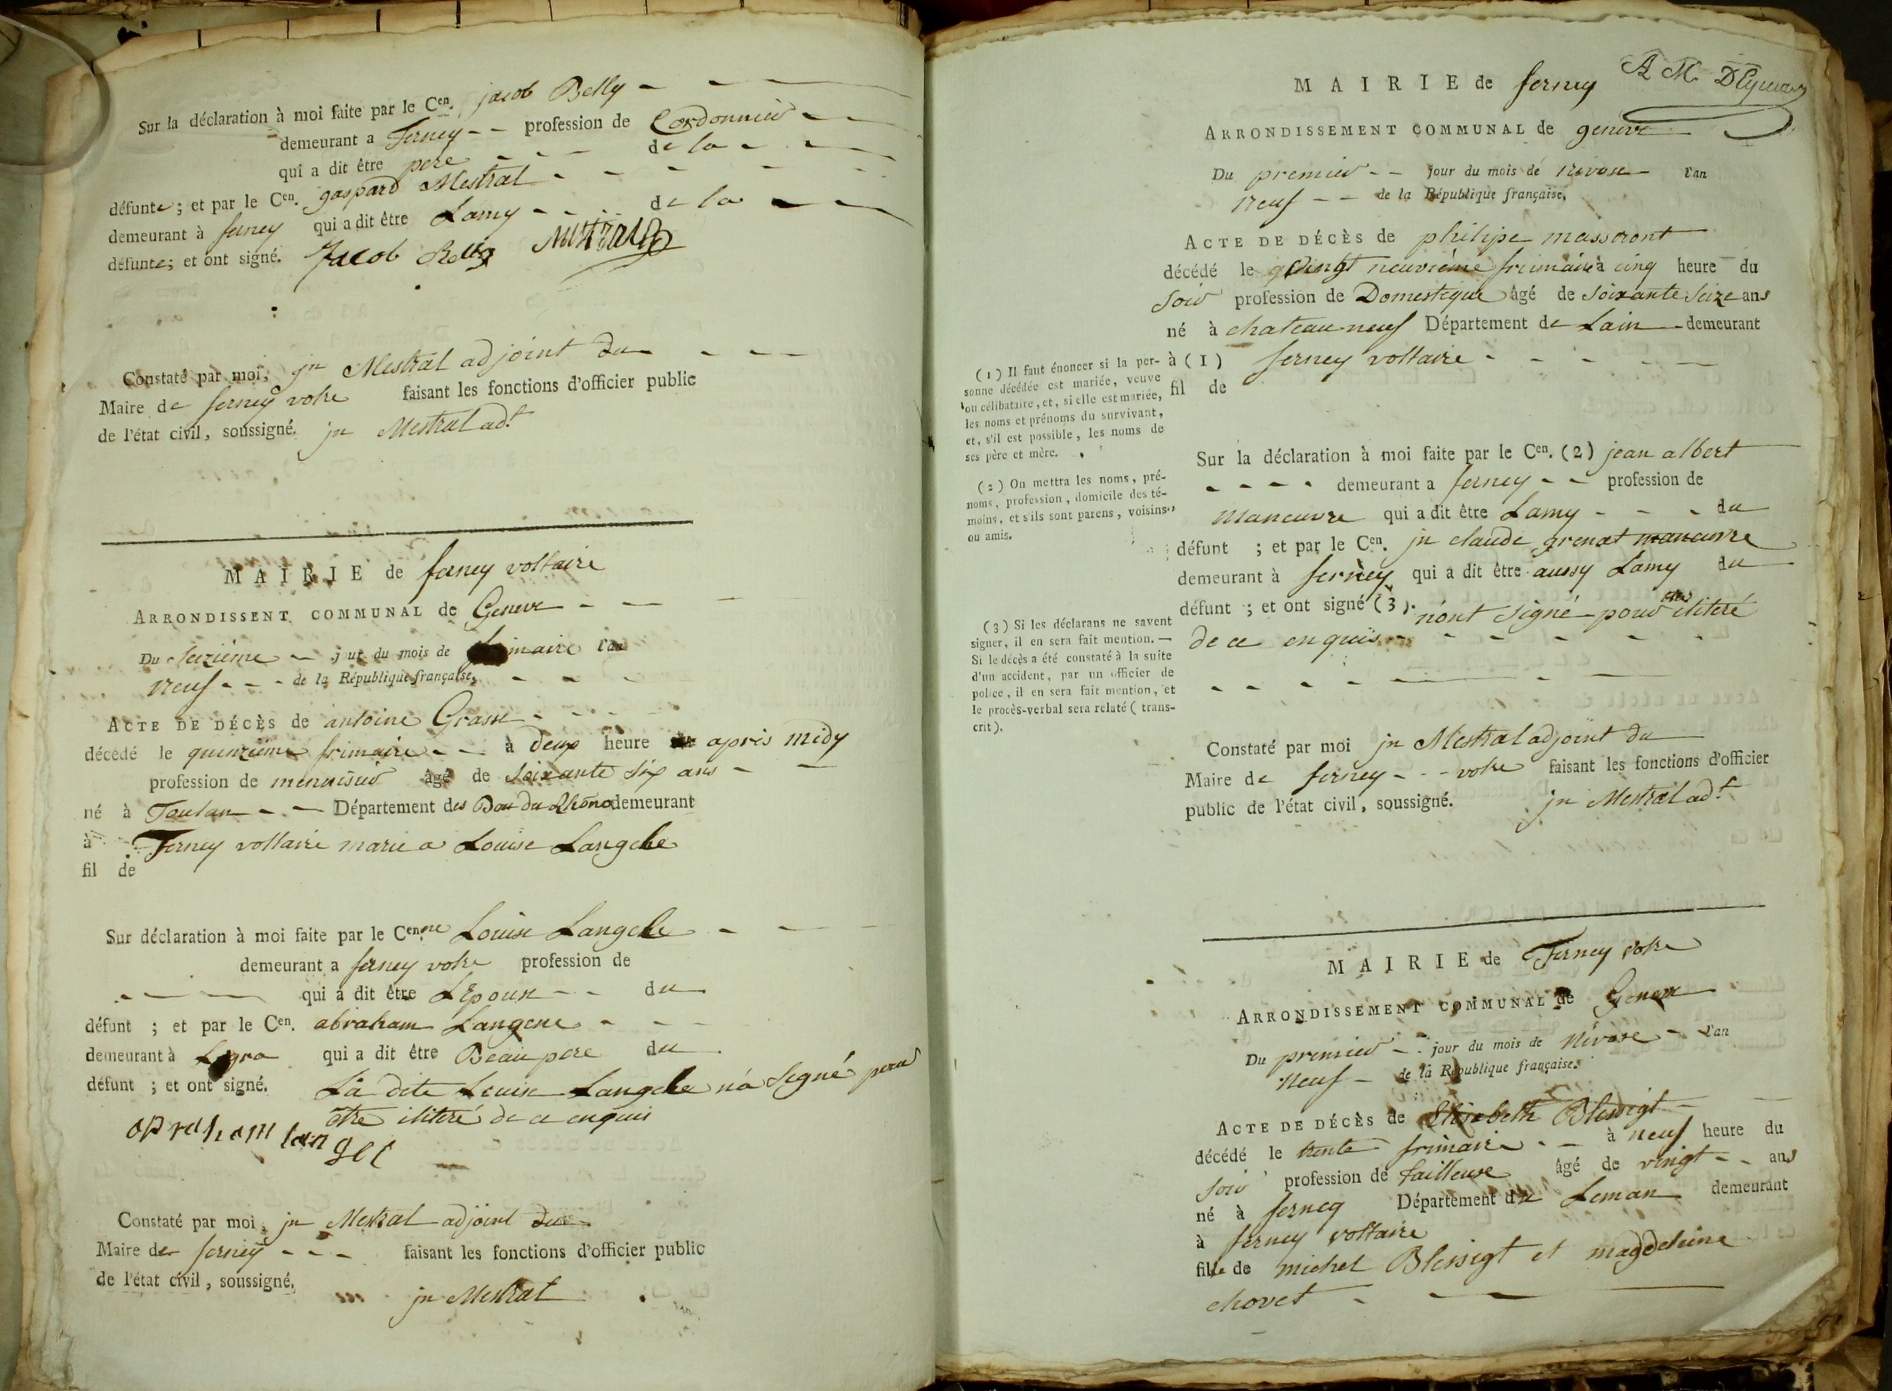 Sur la déclaration à moi faite par le Cen. jacob Belly
demeurant a Ferney profession de Cordonnier
qui a dit être pere de la
défunte ; et par le Cen. gaspard Mestral
demeurant à ferney qui a dit être Lamy de la
défunte ; et ont signé. Jacob Mestral
Constaté par moi, jn Mestral adjoint du
Maire de ferney volre faisant les fonctions d'officier public
de l'état civil, soussigné. jn Mestral adt.
MAIRIE de ferney voltaire
ARRONDISSENT COMMUNAL de Geneve
Du seizième jour du mois de frimaire l'an
neuf de la République française.
ACTE DE DÉCÈS de antoine Grasse
décédé le quinzième frimaire à deux heure apres midy
profession de menuisier âgé de soixante six ans
né à Toulon Département des Bou du Rhône demeurant
à Ferney voltaire marie a Louise Langele
fil de
Sur déclaration à moi faite par le Cen.ne Louise Langele
demeurant a ferney volre profession de
qui a dit être LEpouse du
défunt ; et par le Cen. abraham
demeurant à qui a dit être Beau pere du
défunt ; et ont signé. La dite Louise Langele na Signé pour
etre iliteré de ce enquis
Constaté par moi, jn Mestral adjoint du
Maire de ferney faisant les fonctions d'officier public
de l'état civil, soussigné.
jn Mestral
MAIRIE de ferney A M
ARRONDISSEMENT COMMUNAL de geneve
Du premier jour du mois de nivose l'an
neuf de la République française.
ACTE DE DÉCÈS de philipe massront
décédé le vingt neuvième frimaire à cinq heure du
soir profession de Domestique âgé de soixante seize ans
né à chateau neuf Département de Lain demeurant
à (1) ferney voltaire
fil de
(1) Il faut énoncer si la per-
sonne décédée est mariée, veuve
ou célibataire, et, si elle est mariée,
les noms et prénoms du survivant,
et, s'il est possible, les noms de
ses père et mère.
(2) On mettra les noms, pré-
noms, profession, domicile des té-
moins, et s'ils sont parens, voisins
ou amis.
Sur la déclaration à moi faite par le Cen. (2) jean albert
demeurant a ferney profession de
maneuvre qui a dit être Lamy du
défunt ; et par le Cen. jn claude grenat maneuvre
demeurant à ferney qui a dit être aussy Lamy du
défunt ; et ont signé (3). n'ont signé pour etre iliteré
de ce enquis
(3) Si les déclarans ne savent
signer, il en sera fait mention. —
Si le décès a été constaté à la suite
d'un accident, par un officier de
police, il en sera fait mention, et
le procès-verbal sera relaté (trans-
crit).
Constaté par moi jn Mestral adjoint du
Maire de ferney volre faisant les fonctions d'officier
public de l'état civil, soussigné. jn Mestral adt.
MAIRIE de Ferney volre
ARRONDISSEMENT COMMUNAL de Geneve
Du premier jour du mois de Nivose l'an
neuf de la République française.
ACTE DE DÉCÈS de Elisabeth Blessigt
décédé le trente frimaire à neuf heure du
soir profession de tailleuse âgé de vingt ans
né à ferney Département du Leman demeurant
à ferney voltaire
fille de michel Blessigt et magdeleine
chovet